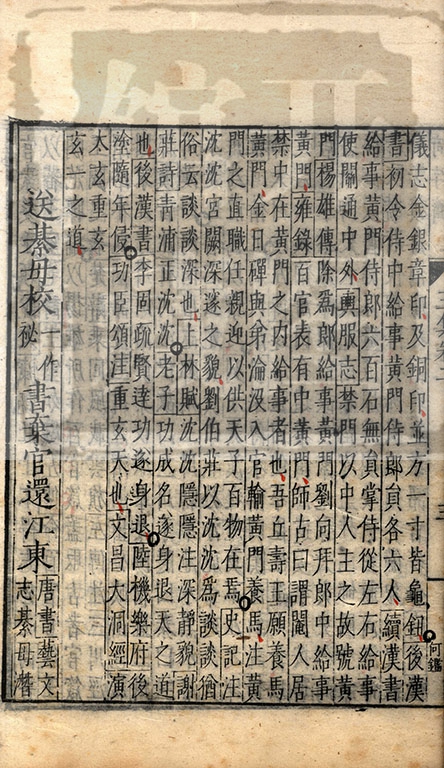 儀志金銀章印及銅印並方一寸皆龜鈕後漢
書初令侍中給事黃門侍郎員各六人續漢書
給事黃門侍郎六百石無員掌侍從左右給事
使關通中外輿服志禁門以中人主之故號黃
門楊雄傳除為郎給事黃門劉向拜郎中給事
黃門雍錄百官表有中黃門師古曰謂閹人居
禁中在黃門之內給事者也吾丘壽王願養馬
黃門金日磾與弟淪沒入官輸黃門養馬注黃
門之直職任親迎以供天子百物在焉史記注
沈沈宮闕深邃之貌劉伯莊以沈沈為談談猶
俗云談談深也上林賦沈沈隱隱注深靜貌謝
莊詩青浦正沈沈老子功成名遂身退天之道
也後漢書李固疏賢達功遂身退陸機樂府後
塗隨年侵功臣頌注重玄天也文昌大洞經演
太玄重玄
玄一之道
送綦毋校一作祕書棄官還江東唐書藝文志綦毋潛
何鑑